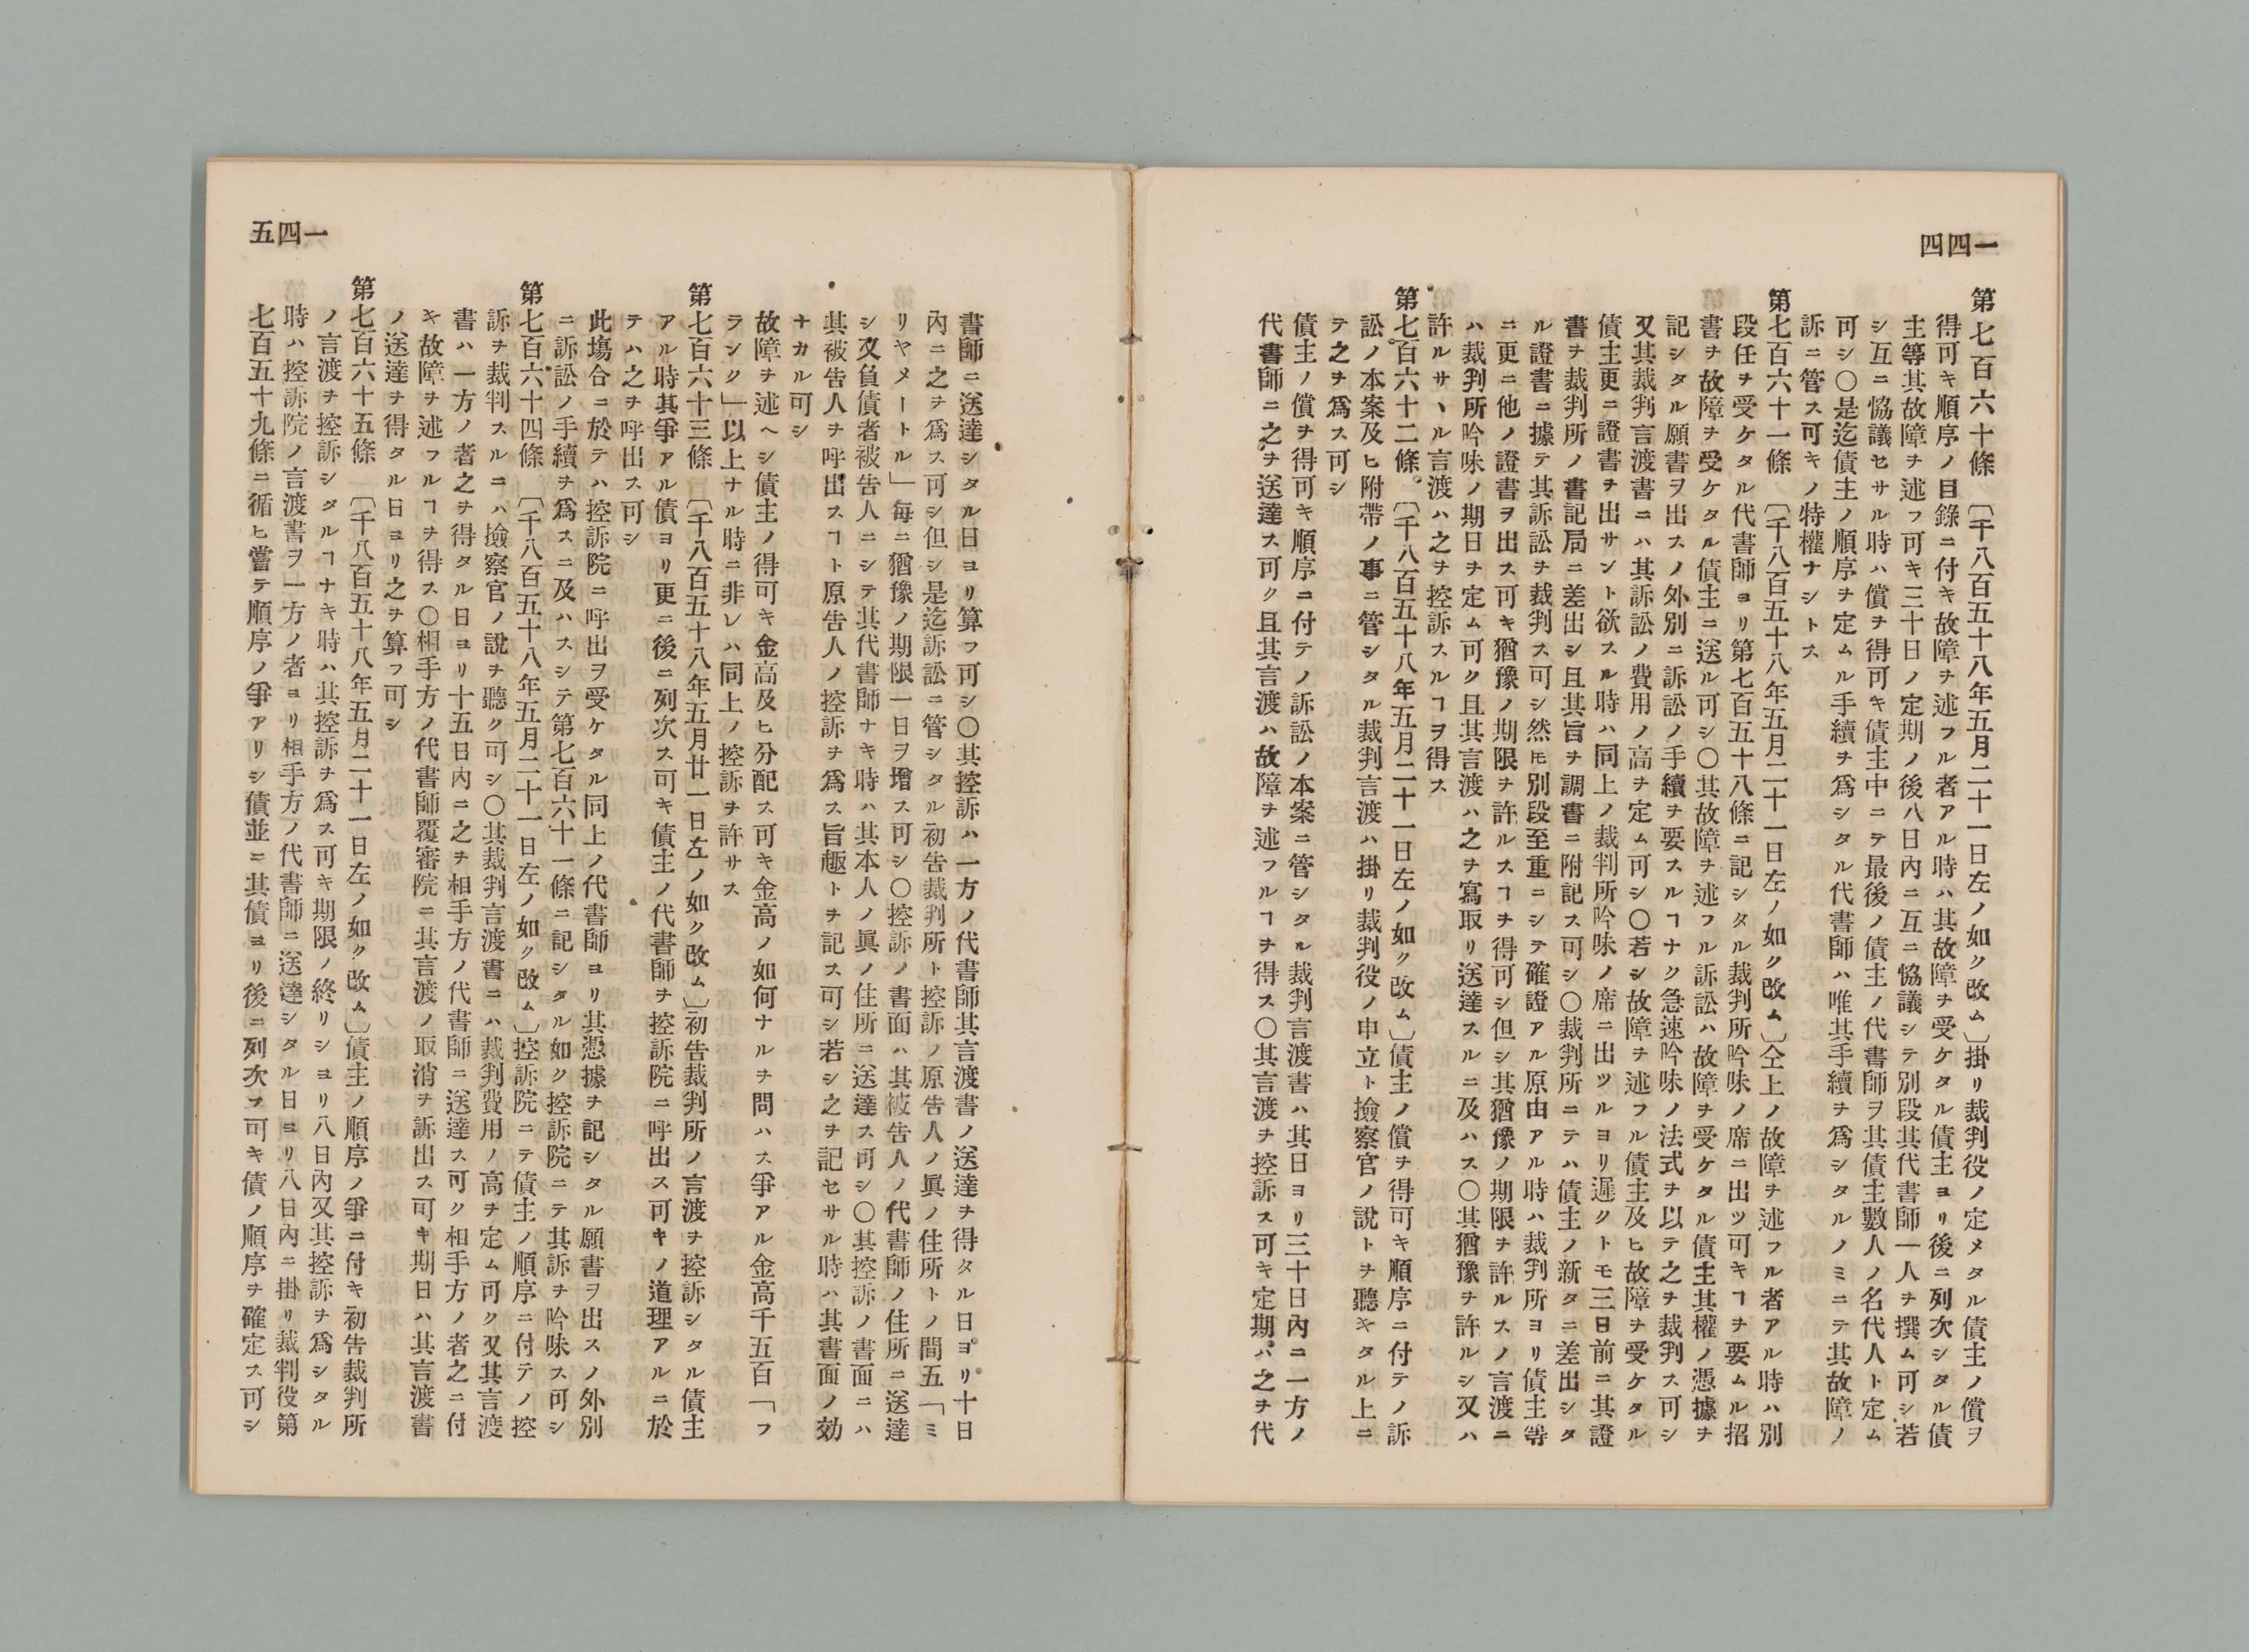 一四四
第七百六十條　〔千八百五十八年五月二十一日左ノ如ク改ム〕掛リ裁判役ノ定メタル債主ノ償ヲ
得可キ順序ノ目錄ニ付キ故障ヲ述フル者アル時ハ其故障ヲ受ケタル債主ヨリ後ニ列次シタル債
主等其故障ヲ述フ可キ三十日ノ定期ノ後八日內ニ互ニ恊議シテ別段其代書師一人ヲ撰ム可シ若
シ互ニ恊議セサル時ハ償ヲ得可キ債主中ニテ最後ノ債主ノ代書師ヲ其債主數人ノ名代人ト定ム
可シ〇是迄債主ノ順序ヲ定ムル手續ヲ爲シタル代書師ハ唯其手續ヲ爲シタルノミニテ其故障ノ
訴ニ管ス可キノ特權ナシトス
第七百六十一條　〔千八百五十八年五月二十一日左ノ如ク改ム〕仝上ノ故障ヲ述フル者アル時ハ別
段任ヲ受ケタル代書師ヨリ第七百五十八條ニ記シタル裁判所吟味ノ席ニ出ツ可キヿヲ要ムル招
書ヲ故障ヲ受ケタル債主ニ送ル可シ〇其故障ヲ述フル訴訟ハ故障ヲ受ケタル債主其權ノ憑據ヲ
記シタル願書ヲ出スノ外別ニ訴訟ノ手續ヲ要スルヿナク急速吟味ノ法式ヲ以テ之ヲ裁判ス可シ
又其裁判言渡書ニハ其訴訟ノ費用ノ高ヲ定ム可シ〇若シ故障ヲ述フル債主及ヒ故障ヲ受ケタル
債主更ニ證書ヲ出サント欲スル時ハ同上ノ裁判所吟味ノ席ニ出ツルヨリ遲クトモ三日前ニ其證
書ヲ裁判所ノ書記局ニ差出シ且其旨ヲ調書ニ附記ス可シ〇裁判所ニテハ債主ノ新タニ差出シタ
ル證書ニ據テ其訴訟ヲ裁判ス可シ然𪜈別段至重ニシテ確證アル原由アル時ハ裁判所ヨリ債主等
ニ更ニ他ノ證書ヲ出ス可キ猶豫ノ期限ヲ許ルスヿヲ得可シ但シ其猶豫ノ期限ヲ許ルスノ言渡ニ
ハ裁判所吟味ノ期日ヲ定ム可ク且其言渡ハ之ヲ寫取リ送達スルニ及ハス〇其猶豫ヲ許ルシ又ハ
許ルサヽル言渡ハ之ヲ控訴スルヿヲ得ス
第七百六十二條　〔千八百五十八年五月二十一日左ノ如ク改ム〕債主ノ償ヲ得可キ順序ニ付テノ訴
訟ノ本案及ヒ附帶ノ事ニ管シタル裁判言渡ハ掛リ裁判役ノ申立ト撿察官ノ說トヲ聽キタル上ニ
テ之ヲ爲ス可シ
債主ノ償ヲ得可キ順序ニ付テノ訴訟ノ本案ニ管シタル裁判言渡書ハ其日ヨリ三十日內ニ一方ノ
代書師ニ之ヲ送達ス可ク且其言渡ハ故障ヲ述フルヿヲ得ス〇其言渡ヲ控訴ス可キ定期ハ之ヲ代
一四五
書師ニ送達シタル日ヨリ算フ可シ〇其控訴ハ一方ノ代書師其言渡書ノ送達ヲ得タル日ヨリ十日
內ニ之ヲ爲ス可シ但シ是迄訴訟ニ管シタル初吿裁判所ト控訴ノ原吿人ノ眞ノ住所トノ間五「ミ
リヤメートル」每ニ猶豫ノ期限一日ヲ增ス可シ〇控訴ノ書面ハ其被吿人ノ代書師ノ住所ニ送達
シ又負債者被吿人ニシテ其代書師ナキ時ハ其本人ノ眞ノ住所ニ送達ス可シ〇其控訴ノ書面ニハ
其被吿人ヲ呼出スヿト原吿人ノ控訴ヲ爲ス旨趣トヲ記ス可シ若シ之ヲ記セサル時ハ其書面ノ効
ナカル可シ
故障ヲ述ヘシ債主ノ得可キ金高及ヒ分配ス可キ金高ノ如何ナルヲ問ハス爭アル金高千五百「フ
ランク」以上ナル時ニ非レハ同上ノ控訴ヲ許サス
第七百六十三條　〔千八百五十八年五月廿一日左ノ如ク改ム〕初吿裁判所ノ言渡ヲ控訴シタル債主
アル時其爭アル債ヨリ更ニ後ニ列次ス可キ債主ノ代書師ヲ控訴院ニ呼出ス可キノ道理アルニ於
テハ之ヲ呼出ス可シ
此塲合ニ於テハ控訴院ニ呼出ヲ受ケタル同上ノ代書師ヨリ其憑據ヲ記シタル願書ヲ出スノ外別
ニ訴訟ノ手續ヲ爲スニ及ハスシテ第七百六十一條ニ記シタル如ク控訴院ニテ其訴ヲ吟味ス可シ
第七百六十四條　〔千八百五十八年五月二十一日左ノ如ク改ム〕控訴院ニテ債主ノ順序ニ付テノ控
訴ヲ裁判スルニハ撿察官ノ說ヲ聽ク可シ〇其裁判言渡書ニハ裁判費用ノ高ヲ定ム可ク又其言渡
書ハ一方ノ者之ヲ得タル日ヨリ十五日內ニ之ヲ相手方ノ代書師ニ送達ス可ク相手方ノ者之ニ付
キ故障ヲ述フルヿヲ得ス〇相手方ノ代書師覆審院ニ其言渡ノ取消ヲ訴出ス可キ期日ハ其言渡書
ノ送達ヲ得タル日ヨリ之ヲ算フ可シ
第七百六十五條　〔千八百五十八年五月二十一日左ノ如ク改ム〕債主ノ順序ノ爭ニ付キ初吿裁判所
ノ言渡ヲ控訴シタルヿナキ時ハ其控訴ヲ爲ス可キ期限ノ終リシヨリ八日內又其控訴ヲ爲シタル
時ハ控訴院ノ言渡書ヲ一方ノ者ヨリ相手方ノ代書師ニ送達シタル日ヨリ八日內ニ掛リ裁判役第
七百五十九條ニ循ヒ嘗テ順序ノ爭アリシ債並ニ其債ヨリ後ニ列次ス可キ債ノ順序ヲ確定ス可シ